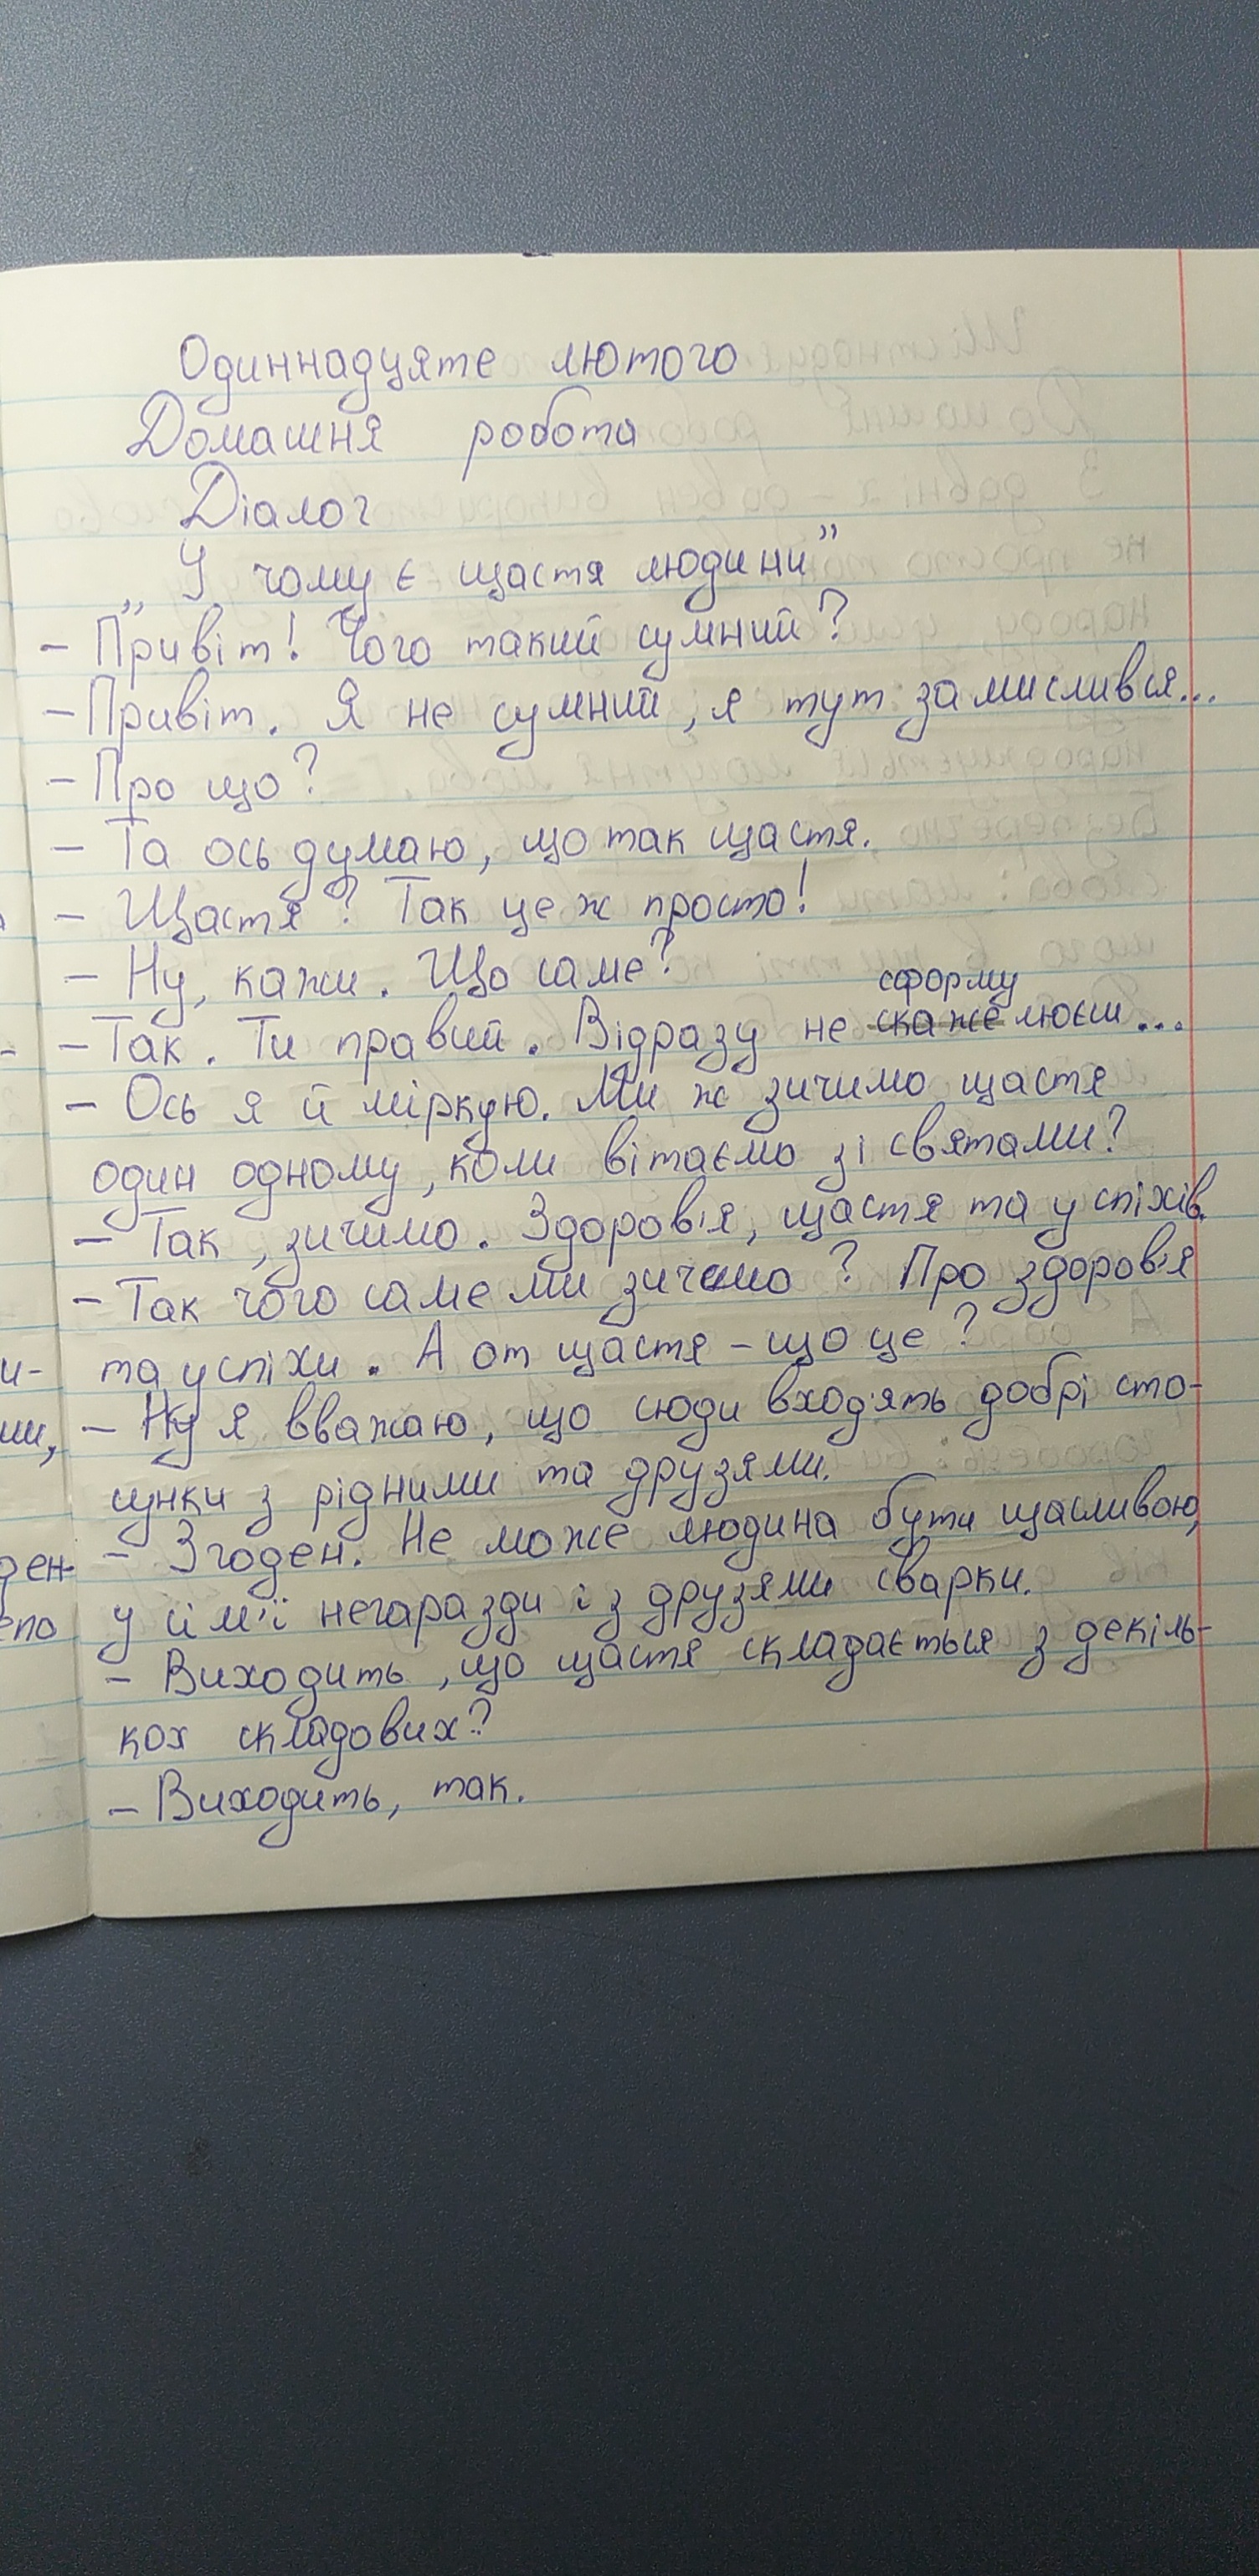 Одиннадцяте лютого
Домашня робота
Діалог
„У чому є щастя людини”
– Привіт! Чого такий сумний?
– Привіт. Я не сумний, я тут замислився...
– Про що?
– Та ось думаю, що так щастя.
– Щастя? Так це ж просто!
– Ну, кажи. Що саме?
сформу
– Так. Ти правий. Відразу не скаже люєш...
– Ось я й міркую. Ми ж зичимо щастя
один одному, коли вітаємо зі святами?
– Так, зичимо. Здоров'я, щастя та успіхів.
– Так чого саме ми зичемо? Про здоров'я
та успіхи. А от щастя – що це?
– Ну я вважаю, що сюди входять добрі сто-
сунки з рідними та друзями.
– Згоден. Не може людина бути щасливою,
у сім'ї негаразди і з друзями сварки.
– Виходить, що щастя складається з декіль-
кох складових?
– Виходить, так.
и-
ми,
ден-
епо